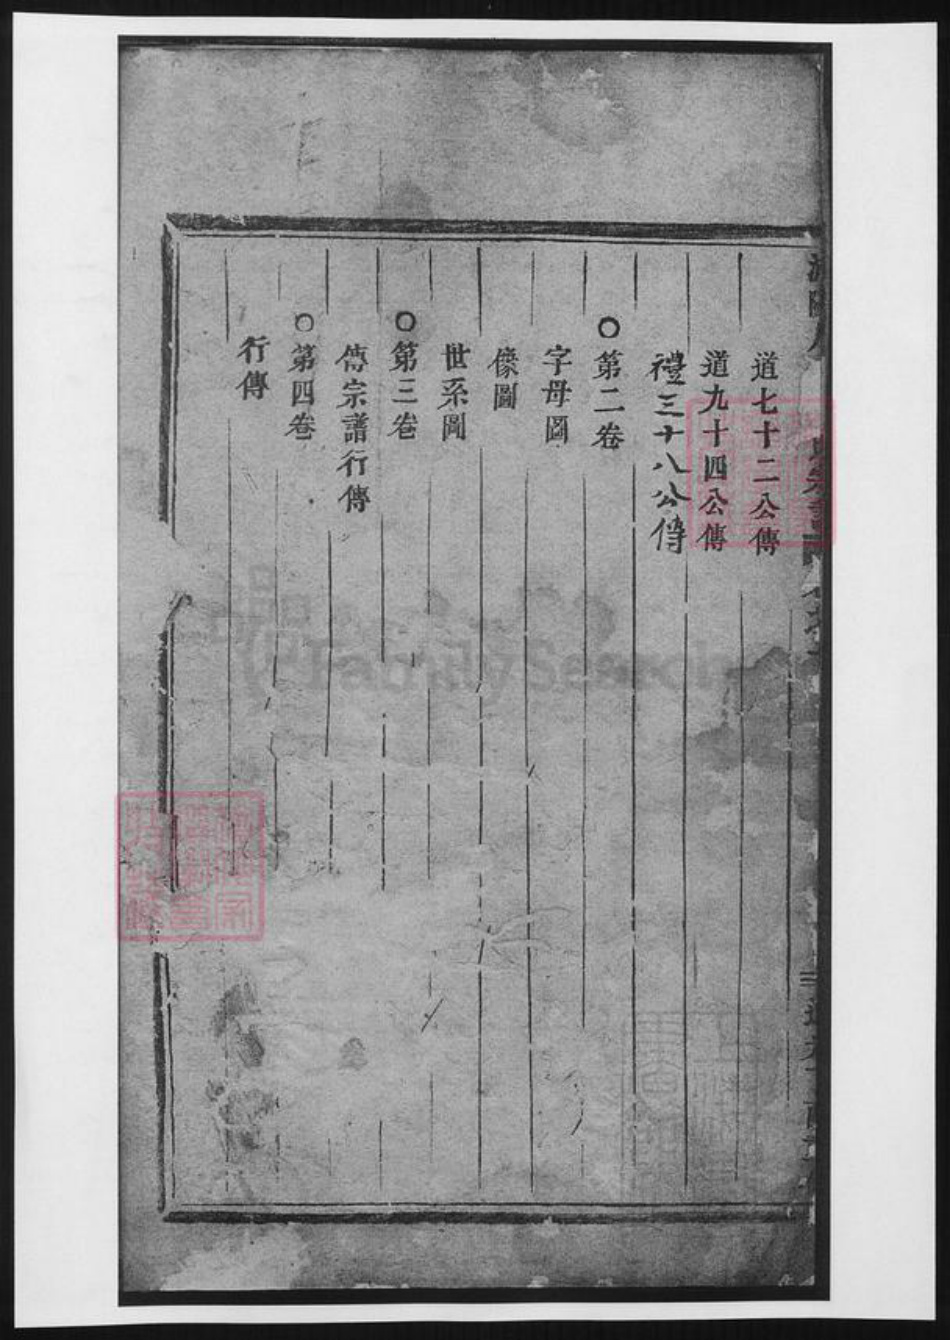 道七十二公傳
道九十四公傳
禮三十八公傳
○第二卷
字母圖
像圖
世系圖
○第三卷
傳宗譜行傳
○第四卷
行傳
FamilySearch